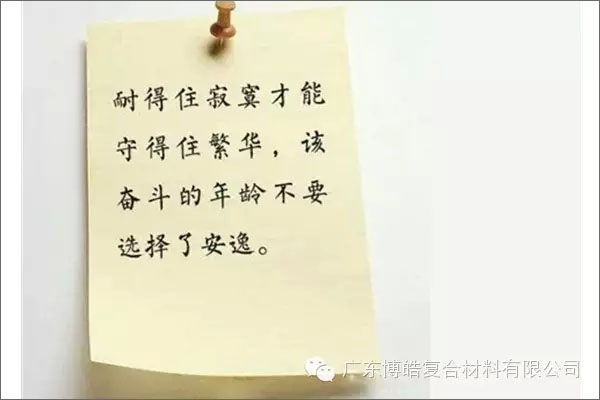 耐得住寂寞才能
守得住繁华，该
奋斗的年龄不要
选择了安逸。
广东博皓复合材料有限公司